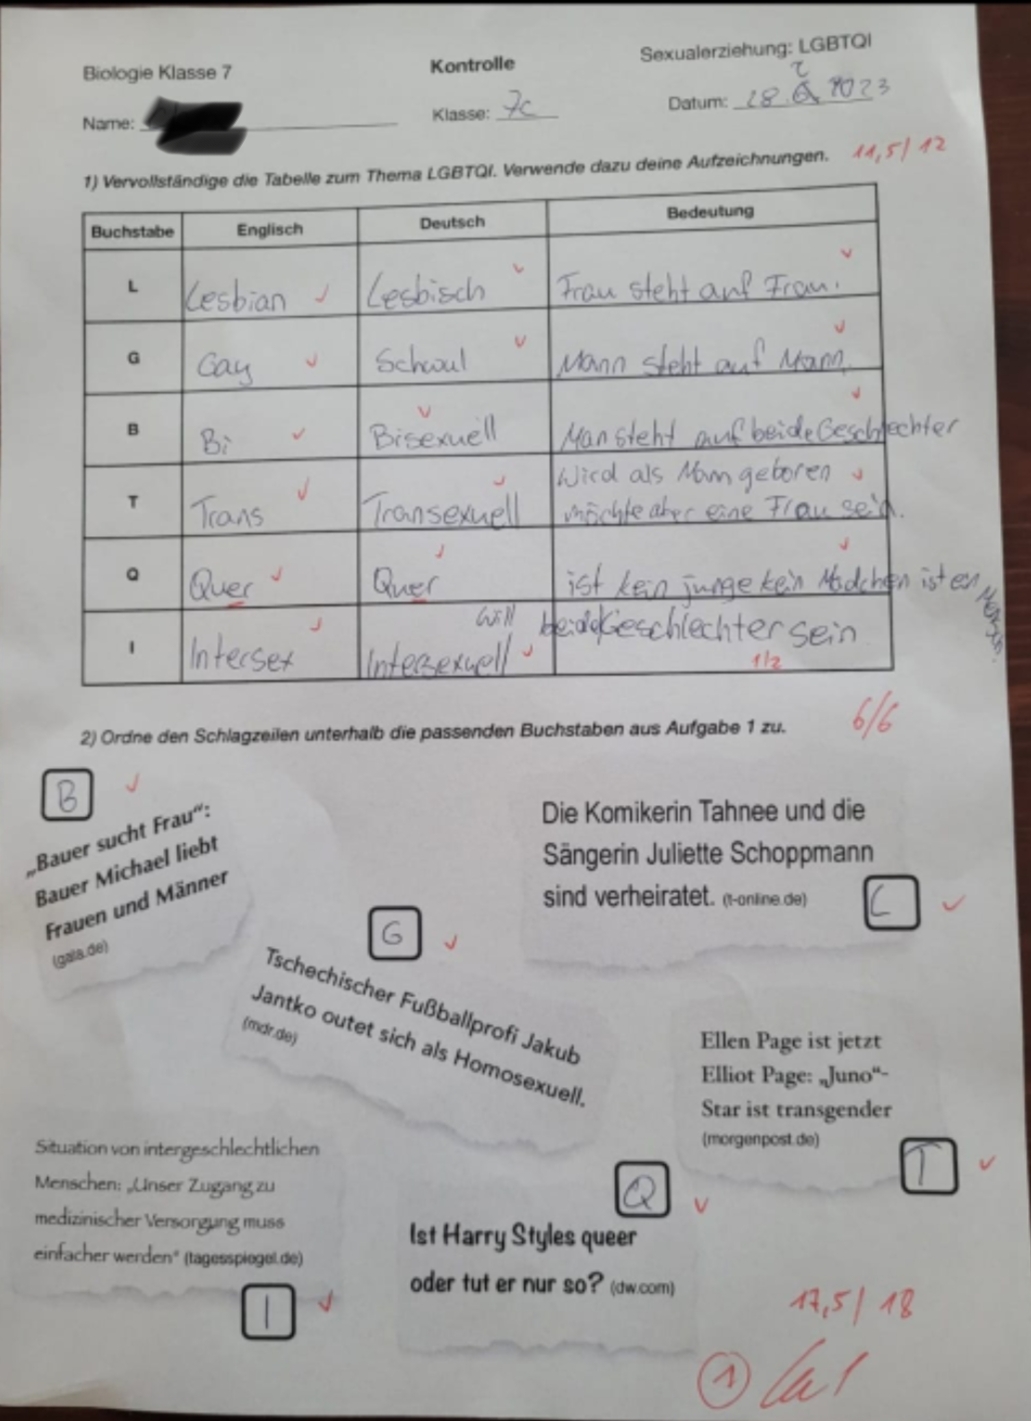 Biologie Klasse 7
Kontrolle
Sexualerziehung: LGBTQI
Name:
Klasse: 7c
Datum: 28. 2023
1) Vervollständige die Tabelle zum Thema LGBTQI. Verwende dazu deine Aufzeichnungen. 11,5/12
Buchstabe Englisch Deutsch Bedeutung
L Lesbian Lesbisch Frau steht auf Frau.
G Gay Schwul Mann steht auf Mann.
B Bi Bisexuell Man steht auf beide Geschlechter
T Trans Transexuell Wird als Mann geboren
möchte aber eine Frau sein.
Q Quer Quer ist kein junge kein Mädchen ist ein Mensch.
I Intersex Intersexuell will beide Geschlechter sein
1/2
2) Ordne den Schlagzeilen unterhalb die passenden Buchstaben aus Aufgabe 1 zu. 6/6
B
„Bauer sucht Frau“:
Bauer Michael liebt
Frauen und Männer
(gala.de)
Die Komikerin Tahnee und die
Sängerin Juliette Schoppmann
sind verheiratet. (t-online.de)
L
G
Tschechischer Fußballprofi Jakub
Jantko outet sich als Homosexuell.
(mdr.de)
Ellen Page ist jetzt
Elliot Page: „Juno“-
Star ist transgender
(morgenpost.de)
T
Situation von intergeschlechtlichen
Menschen: „Unser Zugang zu
medizinischer Versorgung muss
einfacher werden“ (tagesspiegel.de)
I
Q
Ist Harry Styles queer
oder tut er nur so? (dw.com)
17,5/18
1